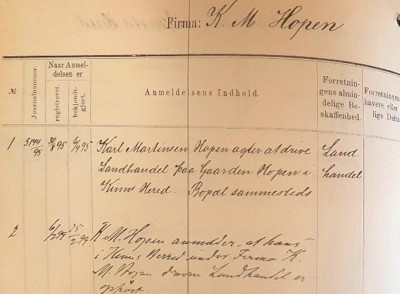 Firma: K. M. Hopen
№
Journalnummer.
Naar Anmeldelsen er
registreret.
bekjendtgjort.
Anmeldelsens Indhold.
Forretningens almindelige Beskaffenhed.
Forretningens
havers eller
lige Delta
1
Karl Martinsen Hopen agter at drive
Landhandel paa Gaarden Hopen i
Kinns Hered. Bopæl sammesteds
Land
handel
2
K. M. Hopen anmelder, at hans
i Kinns Herred under Firma K.
M. Hopen drevne Landhandel er
ophørt